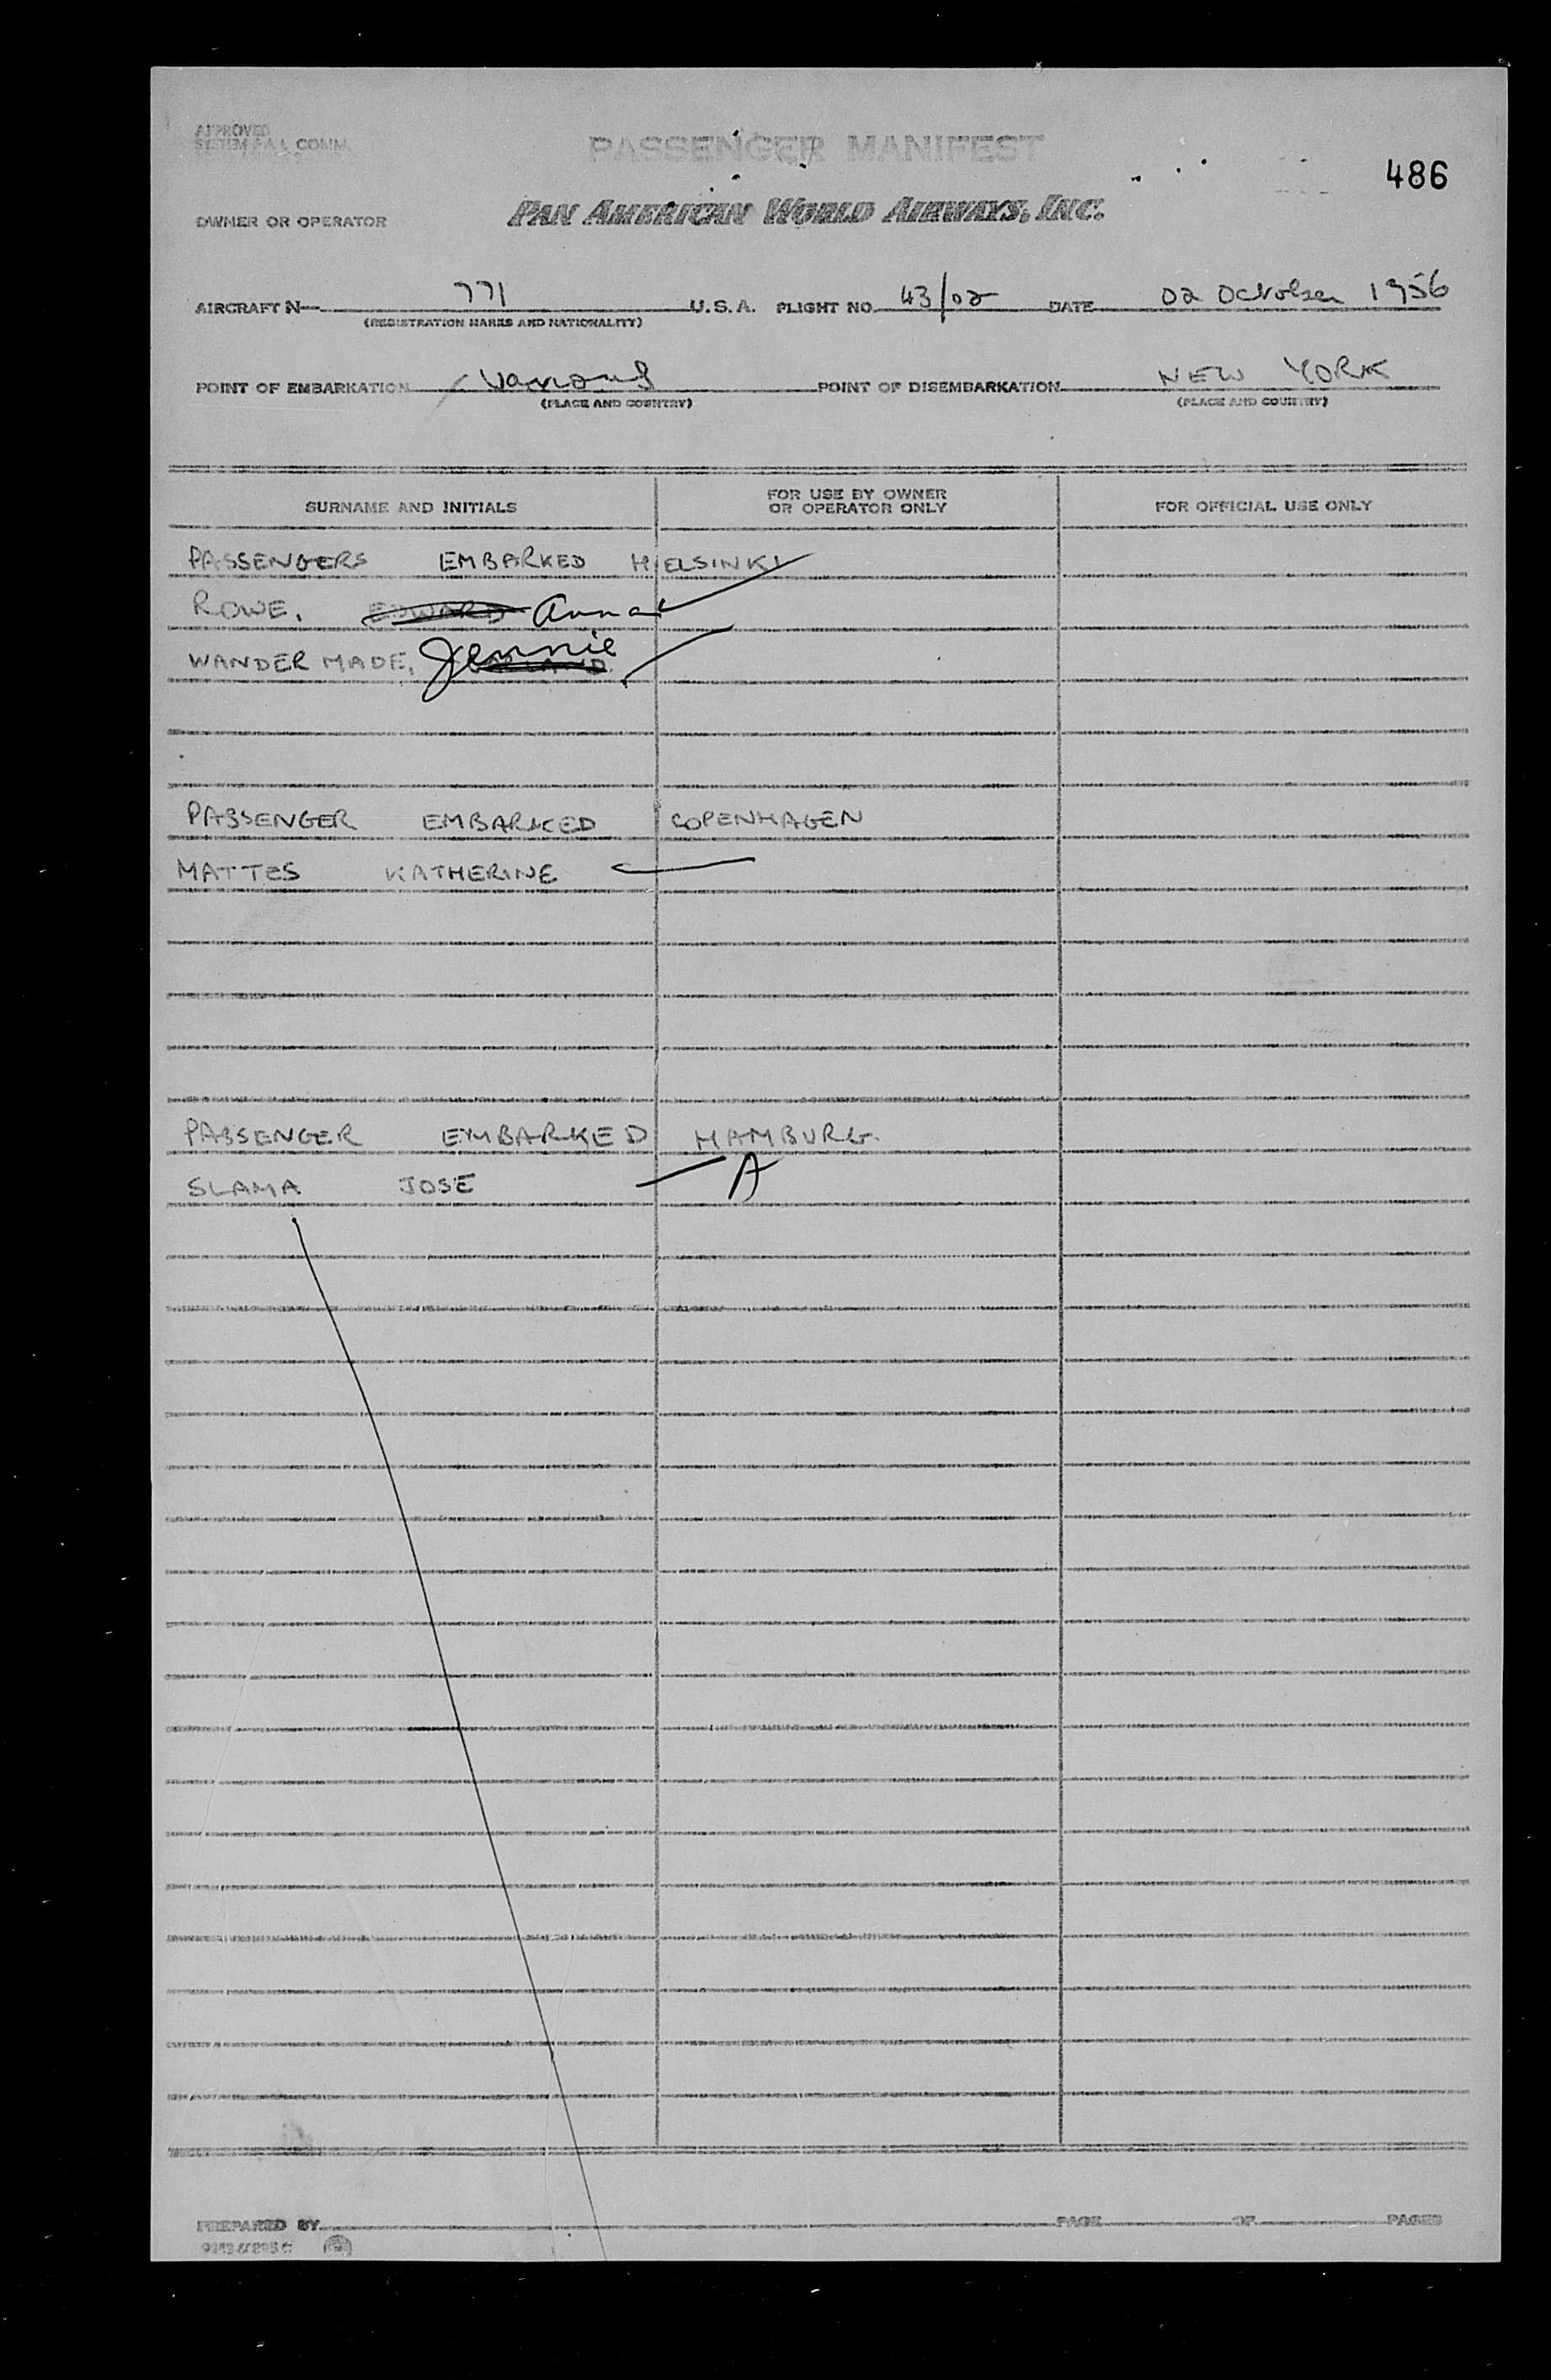 APPROVED
SYSTEM F.A.A. COMM.
PASSENGER MANIFEST
486
OWNER OR OPERATOR
PAN AMERICAN WORLD AIRWAYS, INC.
AIRCRAFT N— 771 U.S.A. FLIGHT NO. 43/02 DATE 02 October 1956
(REGISTRATION MARKS AND NATIONALITY)
POINT OF EMBARKATION Various POINT OF DISEMBARKATION NEW YORK
(PLACE AND COUNTRY) (PLACE AND COUNTRY)
SURNAME AND INITIALS
FOR USE BY OWNER
OR OPERATOR ONLY
FOR OFFICIAL USE ONLY
PASSENGERS EMBARKED HELSINKI
ROWE, EDWARD Anna
WANDER MADE, Jennie
PASSENGER EMBARKED COPENHAGEN
MATTES KATHERINE
PASSENGER EMBARKED HAMBURG.
SLAMA JOSE A
PREPARED BY PAGE OF PAGES